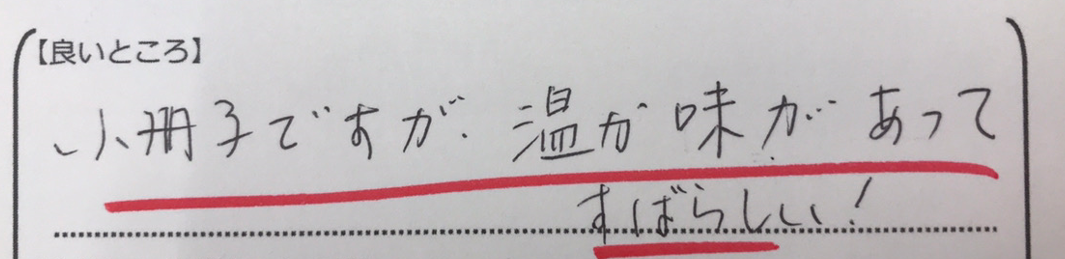 【良いところ】
小冊子ですが、温か味があって
すばらしい!